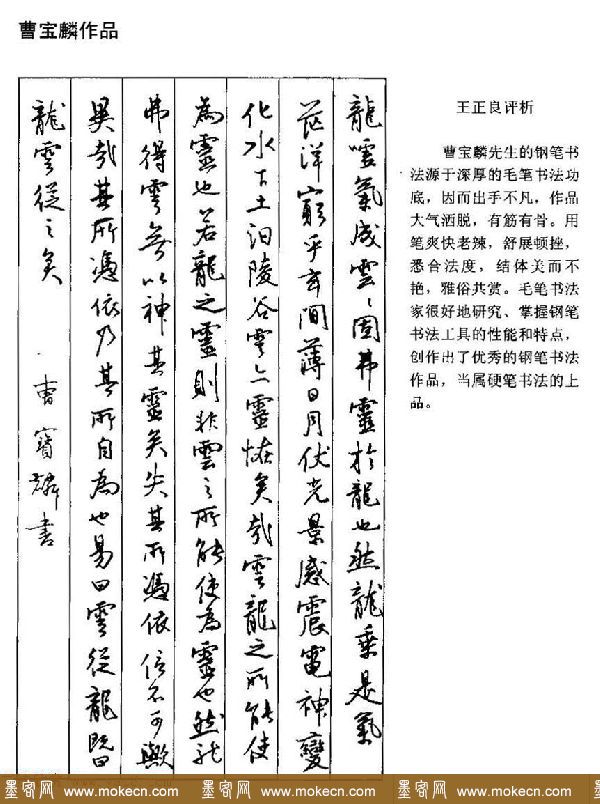 曹宝麟作品
龍噓氣成雲〻固弗靈於龍也然龍乘是氣
茫洋窮乎玄間薄日月伏光景感震電神變
化水下土汩陵谷雲亦靈怪矣哉雲龍之所能使
為靈也若龍之靈則非雲之所能使為靈也然龍
弗得雲無以神其靈矣失其所憑依信不可歟
異哉其所憑依乃其所自為也易曰雲從龍既曰
龍雲從之矣
曹寶麟書
王正良评析
曹宝麟先生的钢笔书
法源于深厚的毛笔书法功
底，因而出手不凡，作品
大气洒脱，有筋有骨。用
笔爽快老辣，舒展顿挫，
悉合法度，结体美而不
艳，雅俗共赏。毛笔书法
家很好地研究、掌握钢笔
书法工具的性能和特点，
创作出了优秀的钢笔书法
作品，当属硬笔书法的上
品。
墨客网 www.mokecn.com 墨客网 www.mokecn.com 墨客网 www.mokecn.com